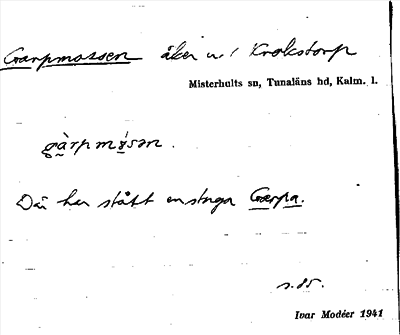 Garpmossen åker u. Krokstorp
Misterhults sn, Tunaläns hd, Kalm. l.
gàrpmɷ́sən.
Där har stått en stuga Garpa.
s. 85.
Ivar Modéer 1941